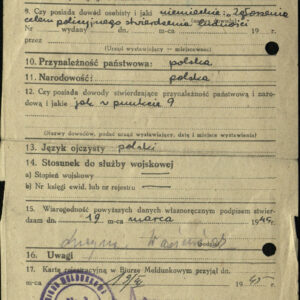 9. Czy posiada dowód osobisty i jaki niemieckie: „zgłoszenie
celem policyjnego stwierdzenia ludności
Nr wydany dn. 19 r.
przez
(Urząd wystawiający — miejscowość)
10. Przynależność państwowa: polska
11. Narodowość: polska
12. Czy posiada dowody stwierdzające przynależność państwową i narodo-
wą i jakie jak w punkcie 9
(Nazwy dowodów, podać urząd wystawiający, datę i miejsce wystawienia)
13. Język ojczysty polski
14. Stosunek do służby wojskowej
a) Stopień wojskowy —
b) Nr księgi ewid. lub nr rejestru —
15. Wiarogodność powyższych danych własnoręcznym podpisem stwier-
dzam dn. 19 marca 1945 r.
16. Uwagi
17. Kartę rejestracyjną w Biurze Meldunkowym przyjął dn.
19 45 r.
BIURO MELDUNKOWE